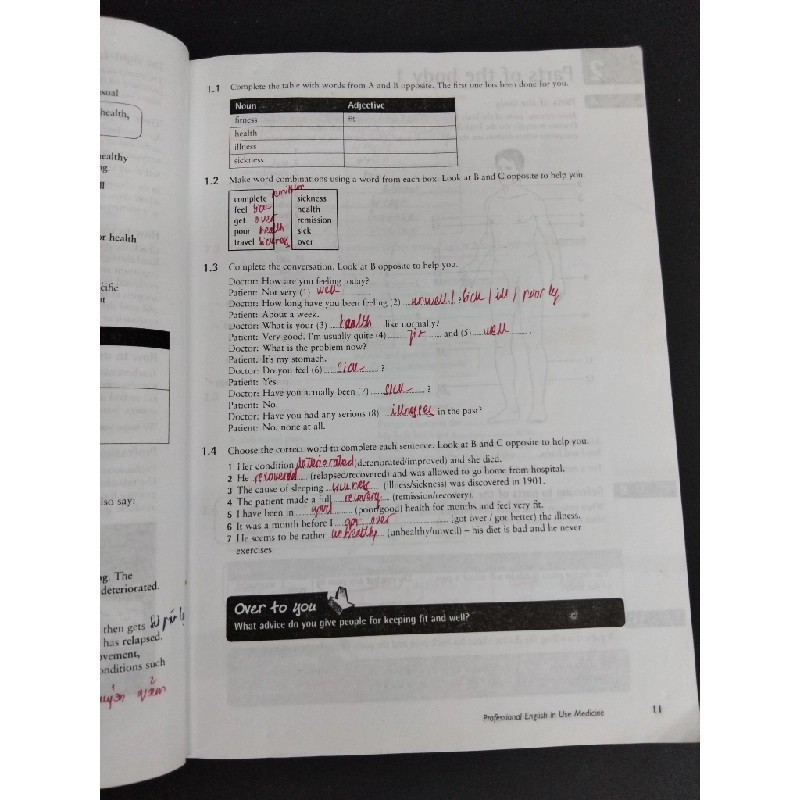 sual
health,
ealthy
or health
cific
so say:
g. The
deteriorated.
then gets
has relapsed.
vement,
onditions such
2 Parts of the body 1
1.1 Complete the table with words from A and B opposite. The first one has been done for you.
Noun Adjective
fitness fit
health
illness
sickness
1.2 Make word combinations using a word from each box. Look at B and C opposite to help you.
complete sickness
feel health
get over remission
poor health sick
travel sickness over
1.3 Complete the conversation. Look at B opposite to help you.
Doctor: How are you feeling today?
Patient: Not very (1) well
Doctor: How long have you been feeling (2) unwell / sick / ill / poorly
Patient: About a week.
Doctor: What is your (3) health like normally?
Patient: Very good. I'm usually quite (4) fit and (5) well.
Doctor: What is the problem now?
Patient: It's my stomach.
Doctor: Do you feel (6) sick ?
Patient: Yes.
Doctor: Have you actually been (7) sick ?
Patient: No.
Doctor: Have you had any serious (8) illnesses in the past?
Patient: No, none at all.
1.4 Choose the correct word to complete each sentence. Look at B and C opposite to help you.
1 Her condition deteriorated (deteriorated/improved) and she died.
2 He recovered (relapsed/recovered) and was allowed to go home from hospital.
3 The cause of sleeping sickness (illness/sickness) was discovered in 1901.
4 The patient made a full recovery (remission/recovery).
5 I have been in good (poor/good) health for months and feel very fit.
6 It was a month before I got over (got over / got better) the illness.
7 He seems to be rather unhealthy (unhealthy/unwell) – his diet is bad and he never
exercises.
Over to you
What advice do you give people for keeping fit and well?
Professional English in Use Medicine 11